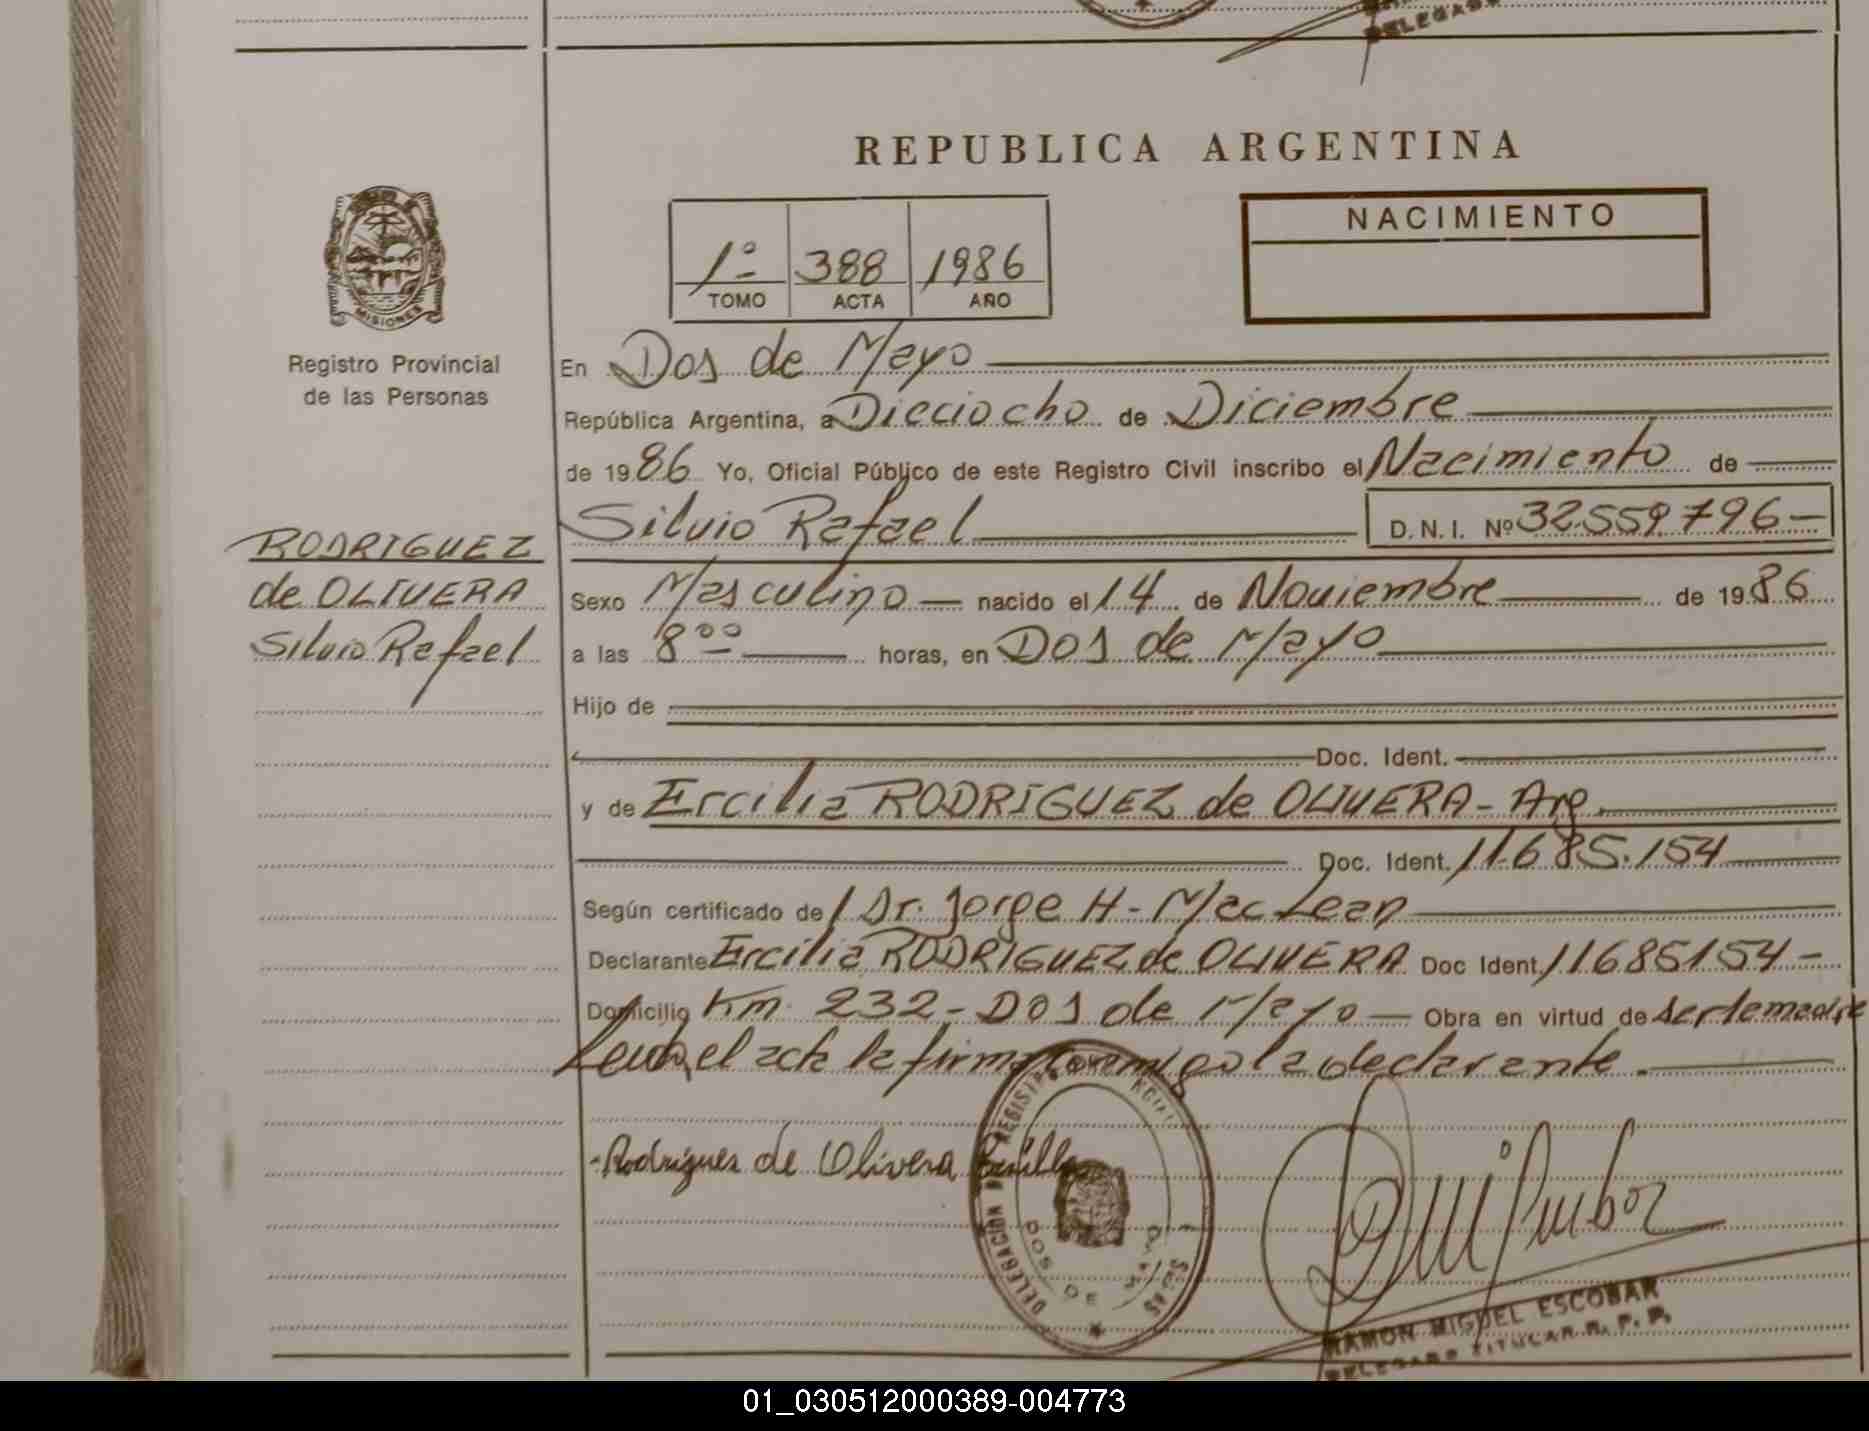 DELEGADO
REPUBLICA ARGENTINA
NACIMIENTO
1º 388 1986
TOMO ACTA AÑO
MISIONES
Registro Provincial
de las Personas
En Dos de Mayo
República Argentina, a Dieciocho de Diciembre
de 1986 Yo, Oficial Público de este Registro Civil inscribo el Nacimiento de
Silvio Rafael D.N.I. Nº 32.559.796-
RODRIGUEZ
de OLIVERA
Silvio Rafael
Sexo Masculino nacido el 14 de Noviembre de 1986
a las 8 00 horas, en Dos de Mayo
Hijo de
Doc. Ident.
y de Ercilia RODRIGUEZ de OLIVERA - Arg.
Doc. Ident. 11.685.154
Según certificado de Dr. Jorge H. Mac Lean
Declarante Ercilia RODRIGUEZ de OLIVERA Doc Ident. 11685154-
Domicilio Km. 232 - Dos de Mayo Obra en virtud de ser la madre
Leída el acta la firma conmigo la declarante.
Rodrigues de Olivera
DELEGACION DOS DE MAYO
RAMON MIGUEL ESCOBAR
DELEGADO TITULAR R. P. P.
01_030512000389-004773